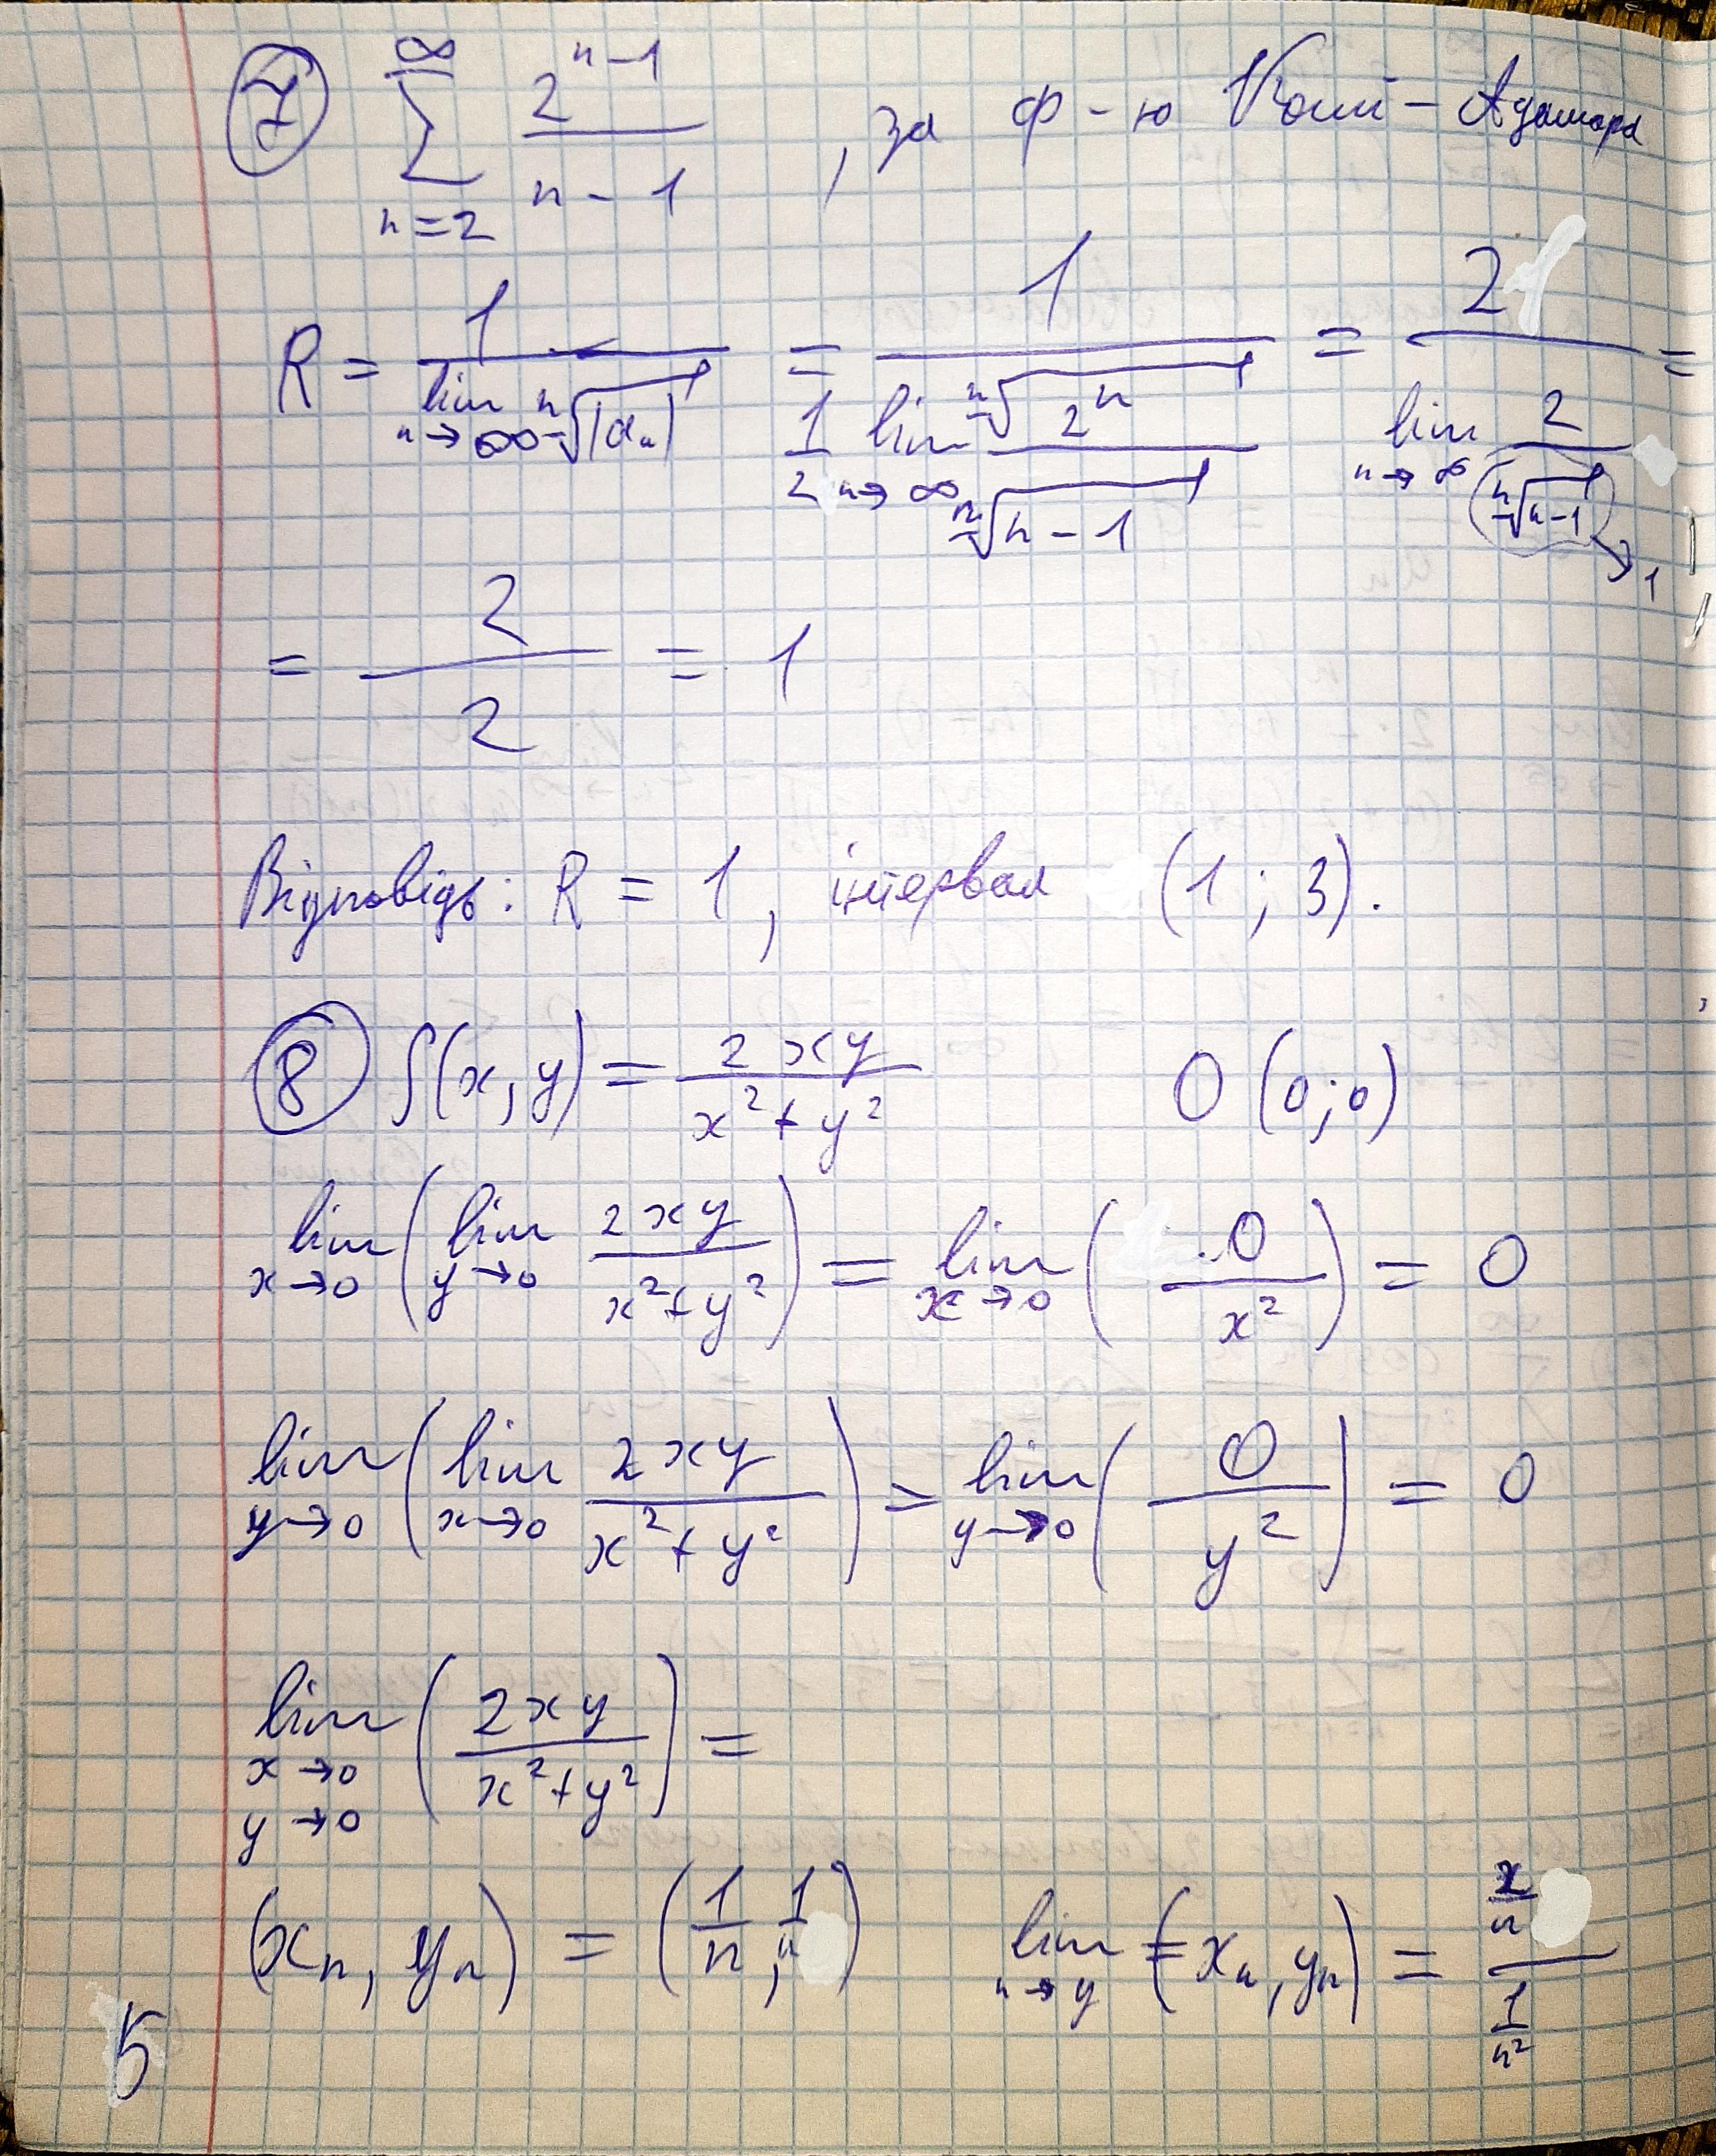 ⑦ ∑_{n=2}^{∞} 2^{n-1}/(n-1) , за ф-ю Коші-Адамара
R = 1/(lim_{n→∞} ⁿ√|a_n|) = 1/((1/2) lim_{n→∞} ⁿ√(2^n)/ⁿ√(n-1)) = 2/(lim_{n→∞} 2/ⁿ√(n-1)) = →1
= 2/2 = 1
Відповідь: R = 1, інтервал (1; 3).
⑧ f(x, y) = 2xy/(x²+y²) O(0;0)
lim_{x→0} (lim_{y→0} 2xy/(x²+y²)) = lim_{x→0} (0/x²) = 0
lim_{y→0} (lim_{x→0} 2xy/(x²+y²)) = lim_{y→0} (0/y²) = 0
lim_{x→0 y→0} (2xy/(x²+y²)) =
(x_n, y_n) = (1/n, 1/n) lim_{n→y} = (x_n, y_n) =
5